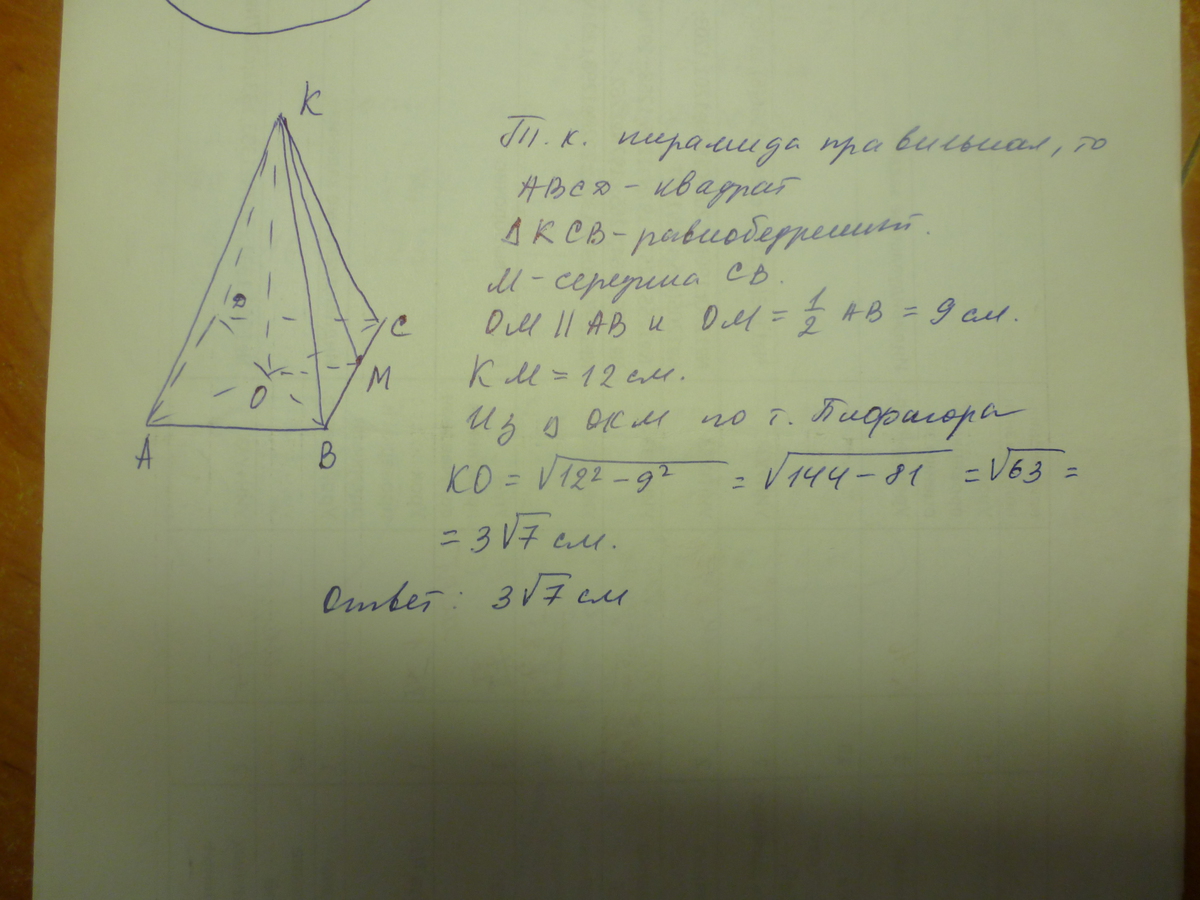 K
Д
C
M
O
A
B
Т.к. пирамида правильная, то
ABCD - квадрат
Δ KCB - равнобедренный.
M - середина CB.
OM || AB и OM = 1/2 AB = 9 см.
KM = 12 см.
Из Δ OKM по т. Пифагора
KO = √(12² - 9²) = √(144 - 81) = √63 =
= 3√7 см.
Ответ: 3√7 см